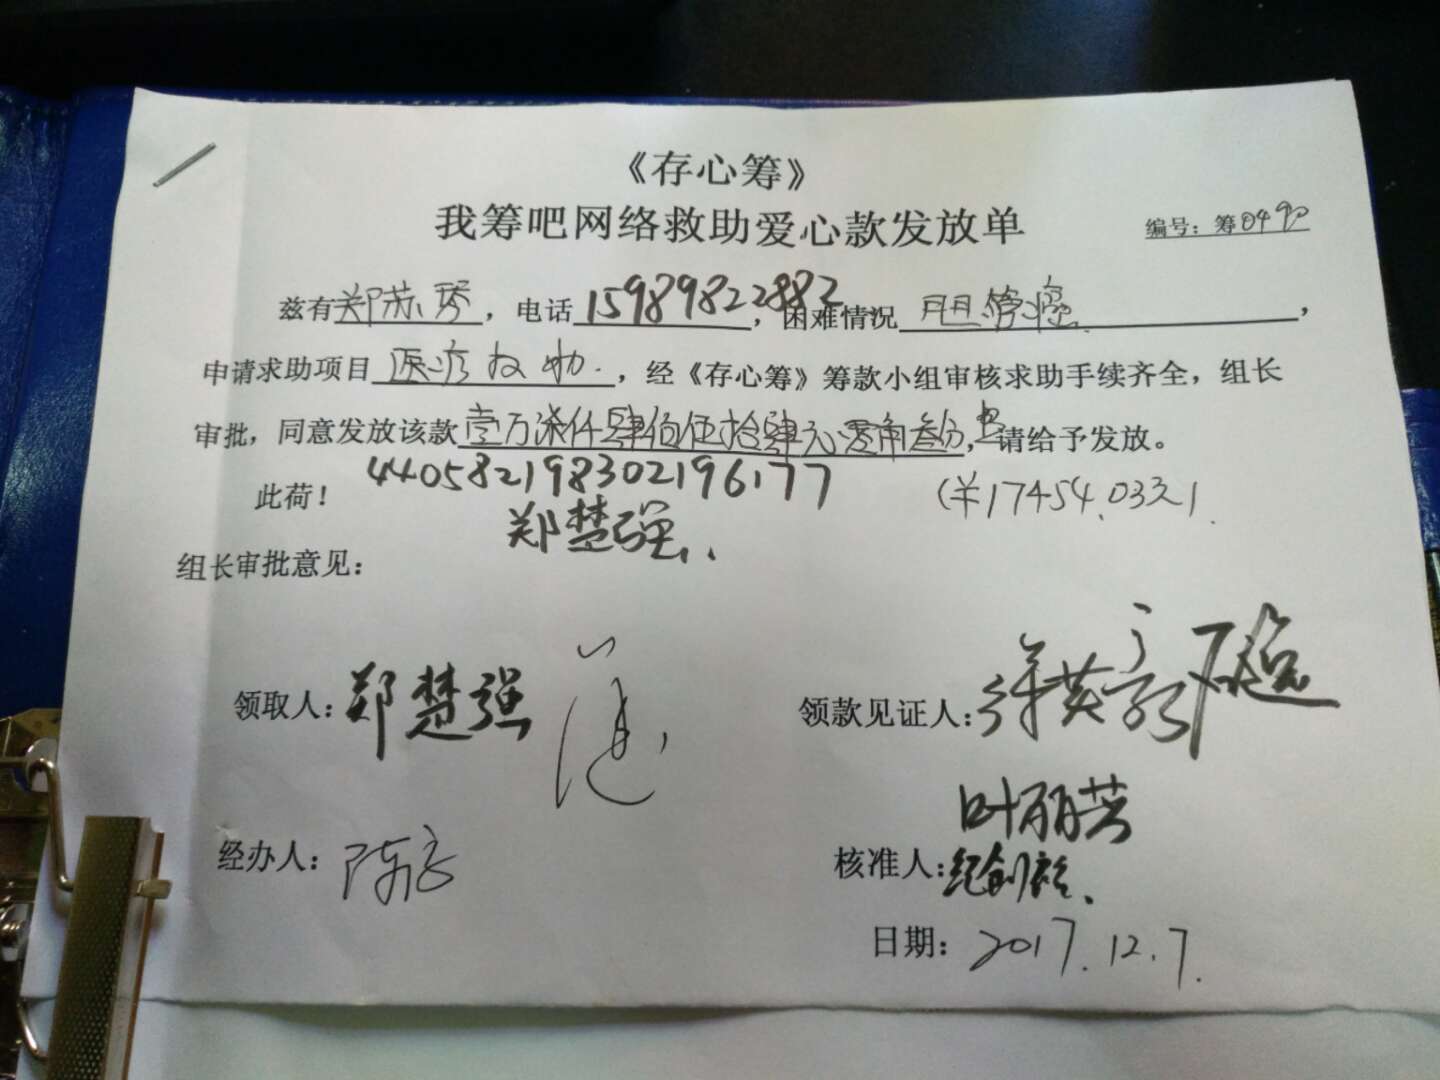 《存心筹》
我筹吧网络救助爱心款发放单
编号：筹0490
兹有郑苏琴，电话15989822882，困难情况胆管癌，
申请求助项目医疗救助，经《存心筹》筹款小组审核求助手续齐全，组长
审批，同意发放该款壹万柒仟肆佰伍拾肆元零角叁分，请给予发放。
此荷！ 440582198302196177 (￥17454.03元).
郑楚强
组长审批意见：
领取人：郑楚强 领款见证人：
叶丽芳
经办人： 核准人：
日期：2017.12.7.